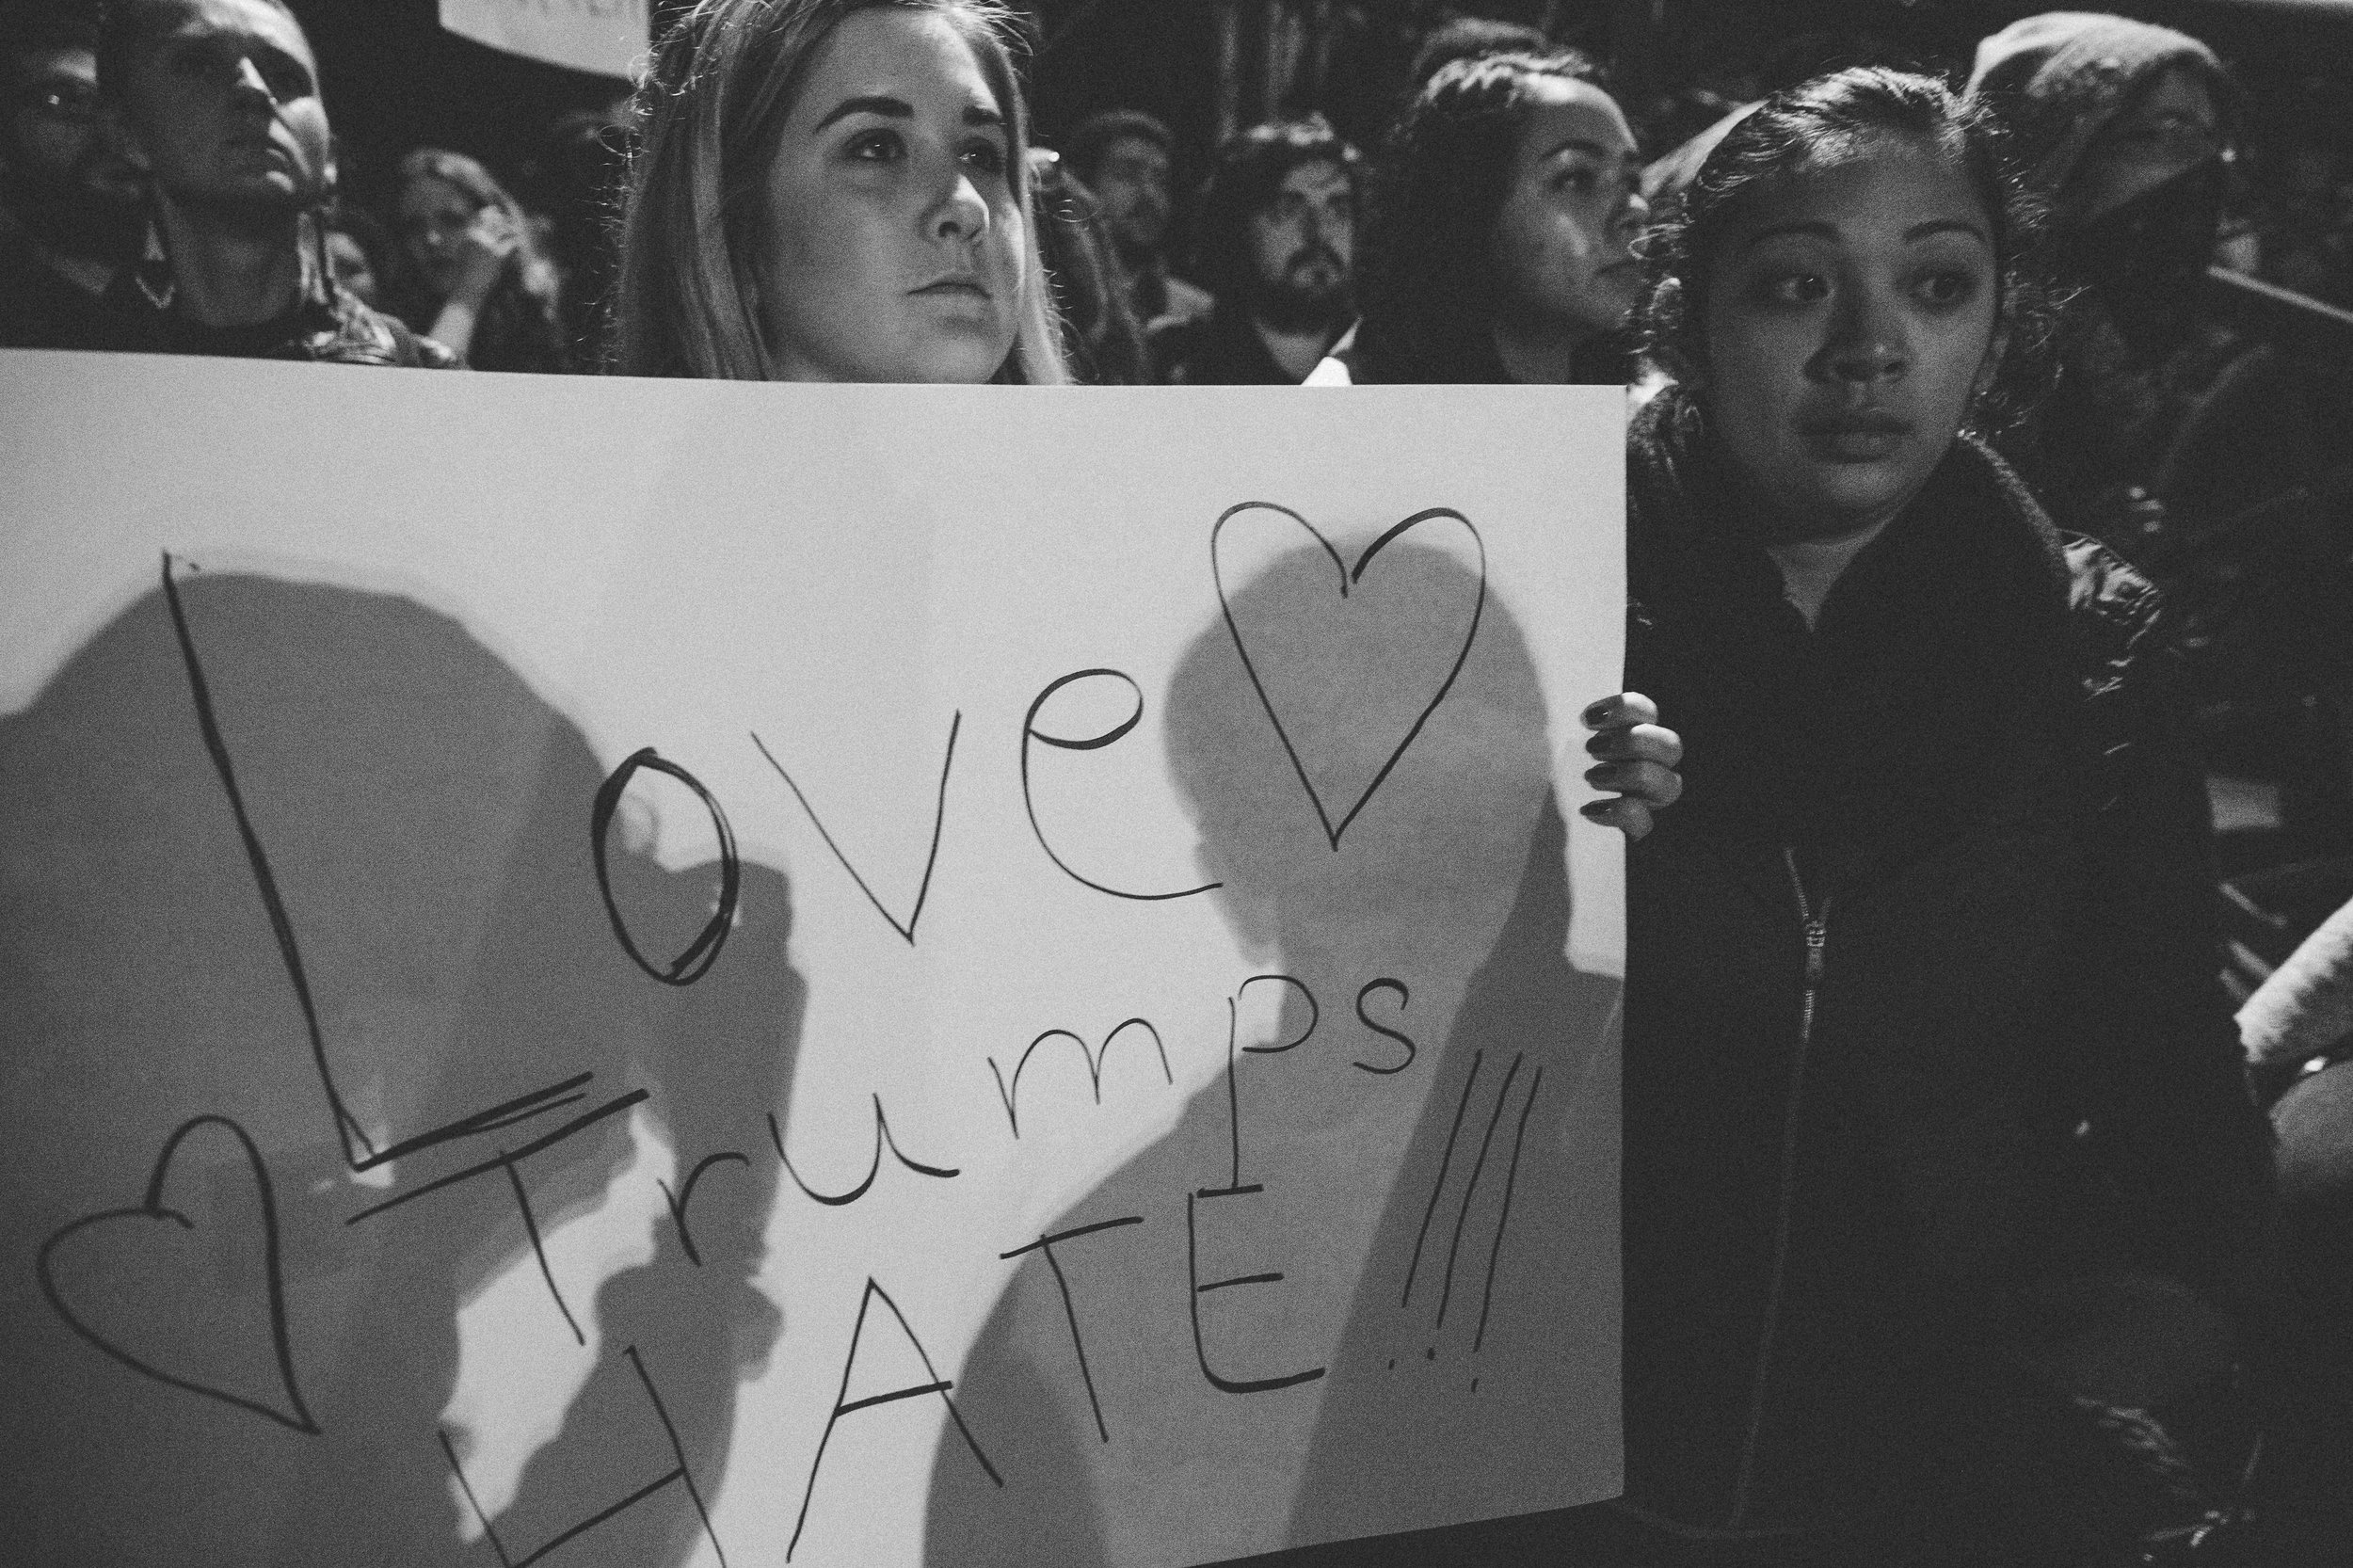 Love ♡
♡ Trumps
HATE!!!